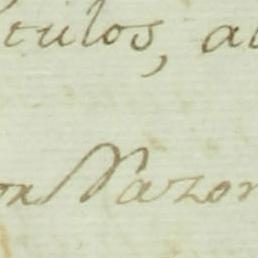 tulos, a
on Razon